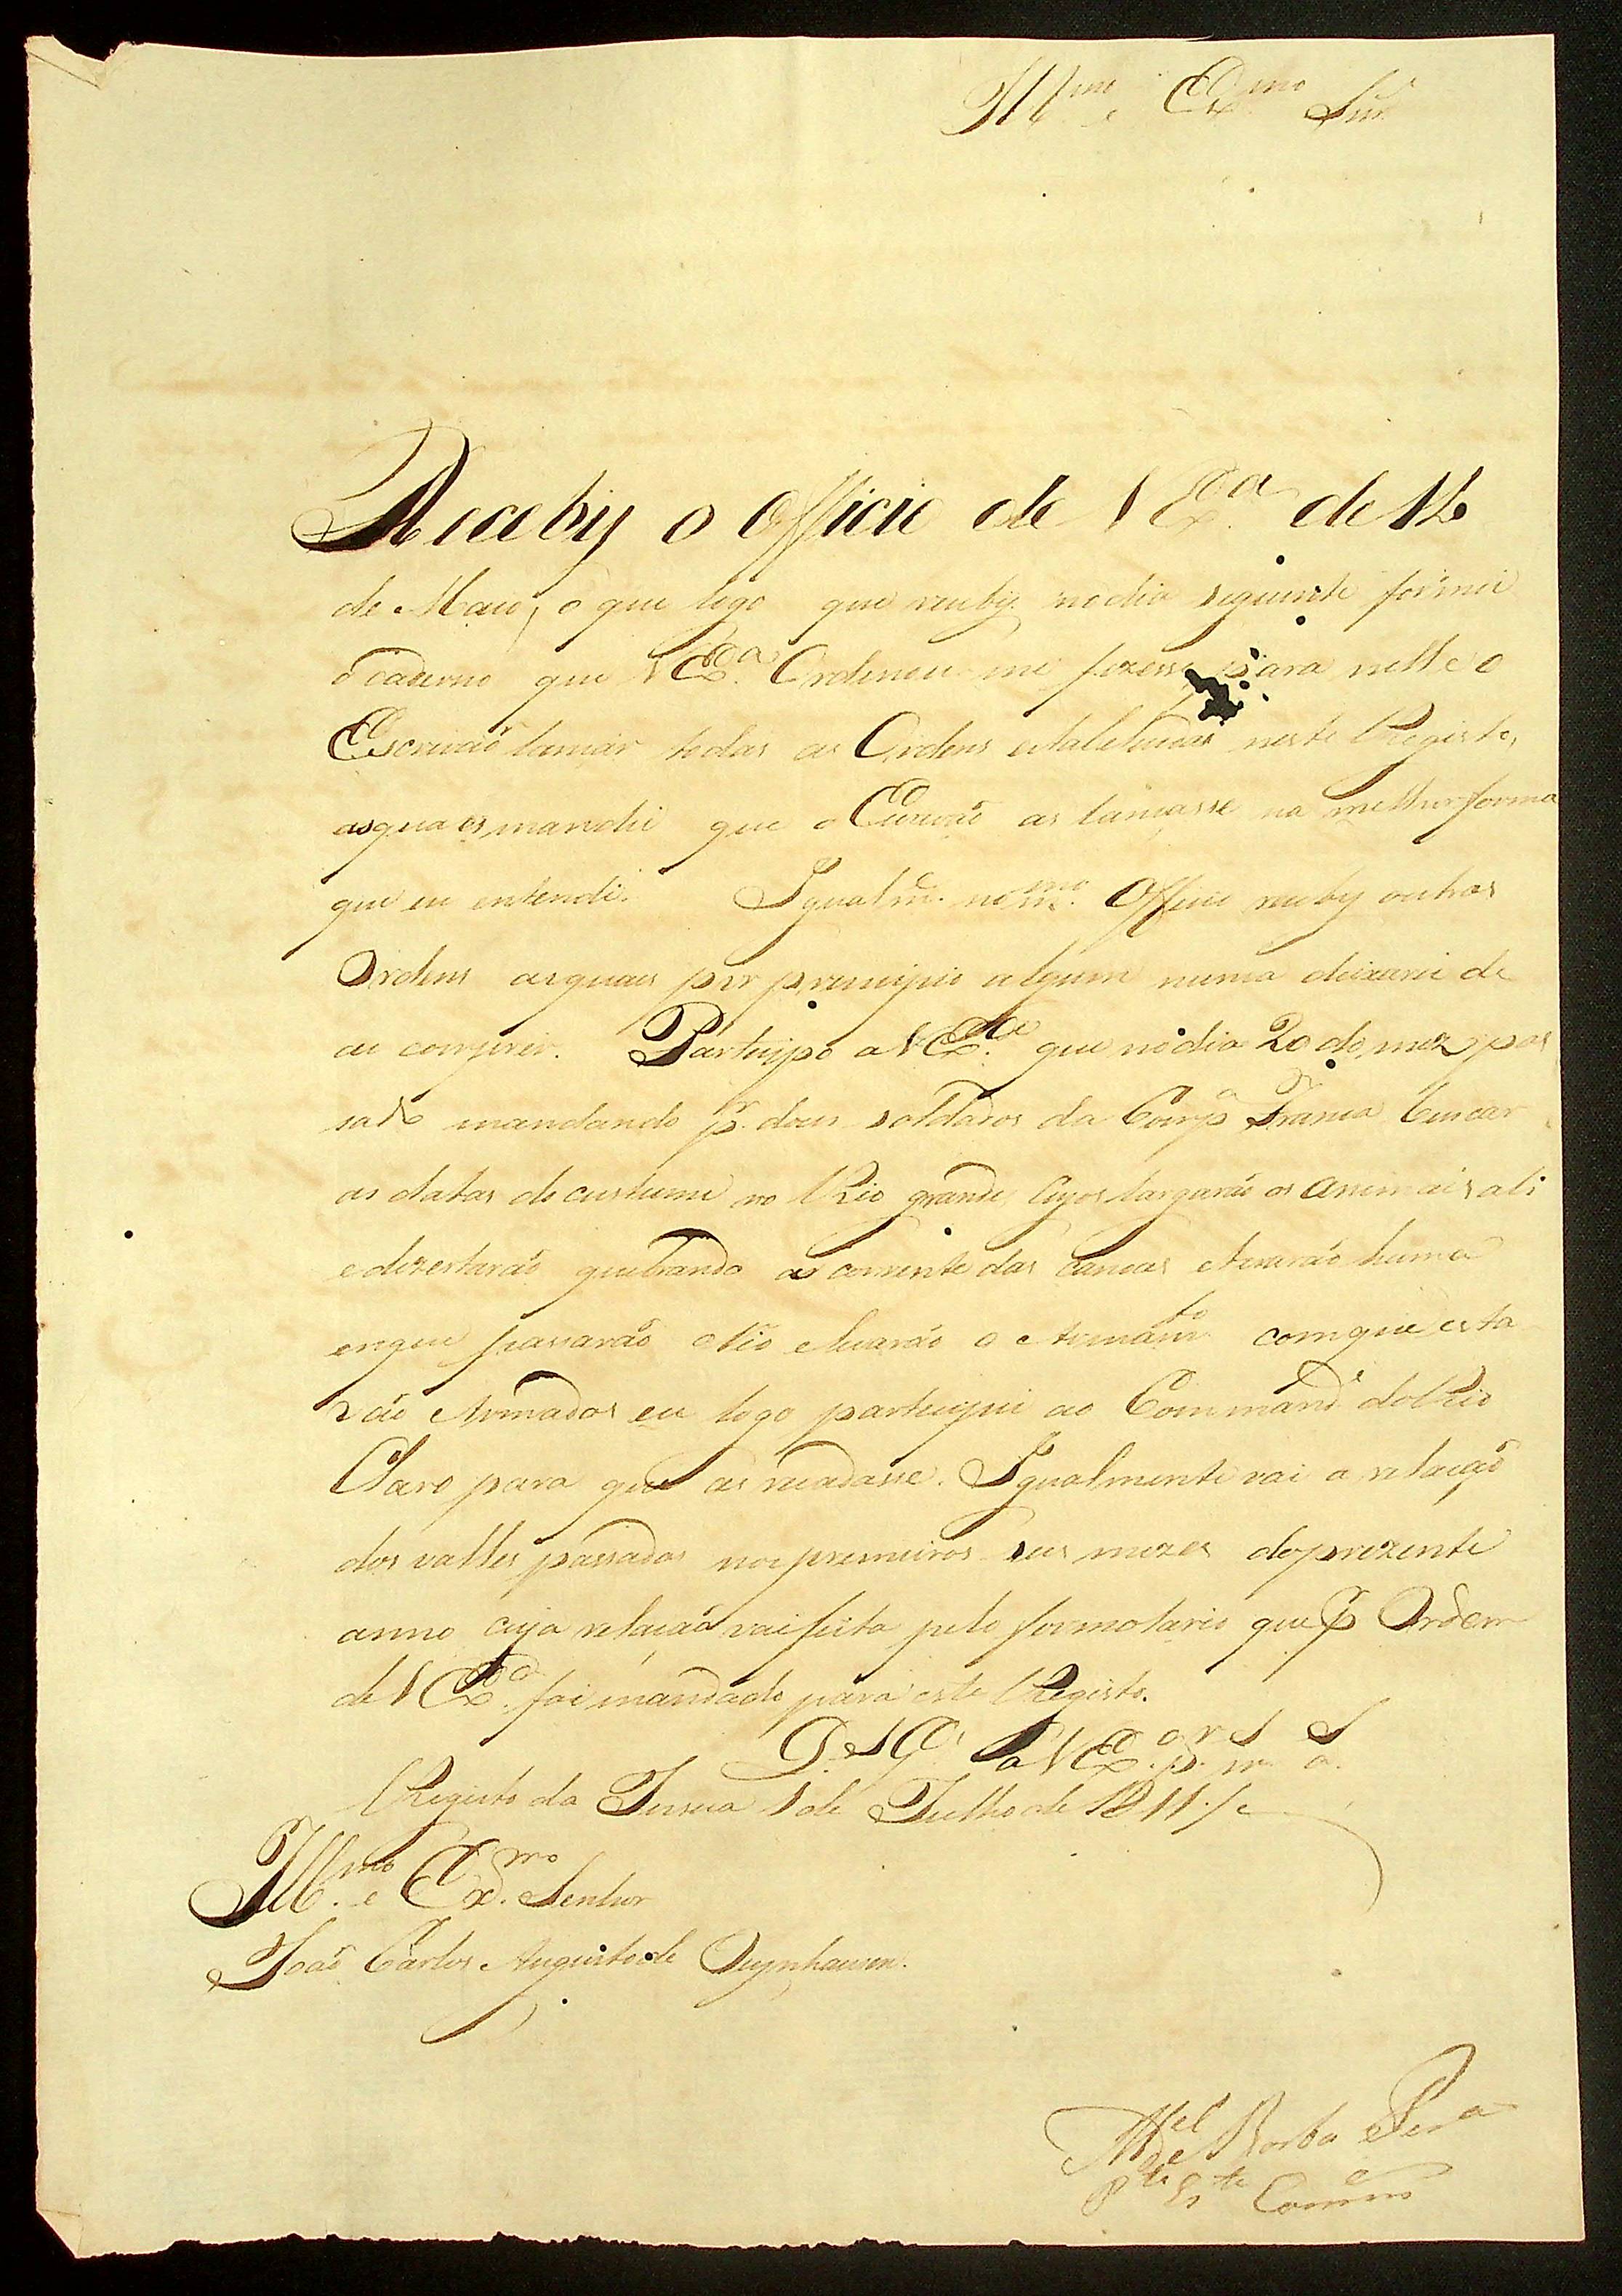 Ill.mo e Ex.mo Snr.
Receby o Officio de V Ex.a de 12
de Maio, o que logo que receby no dia seguinte formei
o caderno que V Ex.a Ordenou me fizesse para nelle o
Escrivaõ lançar todas as Ordens estabelecidas neste Registo,
as quaes mandei que o Escrivaõ as lançasse na melhor forma
que eu entendi. Igualm.e no m.mo Officio receby outras
Ordens as quaes por principio algum nunca deixarei de
as comprir. Participo a V Ex.a que no dia 20 do mez pas
sado mandando p.r dous soldados da Comp.a Franca buscar
as datas do custume no Rio grande, cujos largaraõ os animais ali
e dezertaraõ quebrando as corrente das canoas e levaraõ huma
em que passaraõ o Rio e levaraõ o Armam.to com que esta
vaõ Armados eu logo participei ao Command.e do Rio
Claro para que as recadasse. Igualmente vai a relaçaõ
dos valles passados nos premeiros seis mezes do prezente
anno cuja relaçaõ vai feita pelo formolario que p.r Ordem
de V Ex.a foi mandado para este Registo.
D.s G.e a V Ex.a p.r m.s a.s
Registo da Insua 1 de Julho de 1811
Ill.mo e Ex.mo Senhor
Joaõ Carlos Augusto de Oeynhausen.
M.el de Borba Per.a
Comm.e